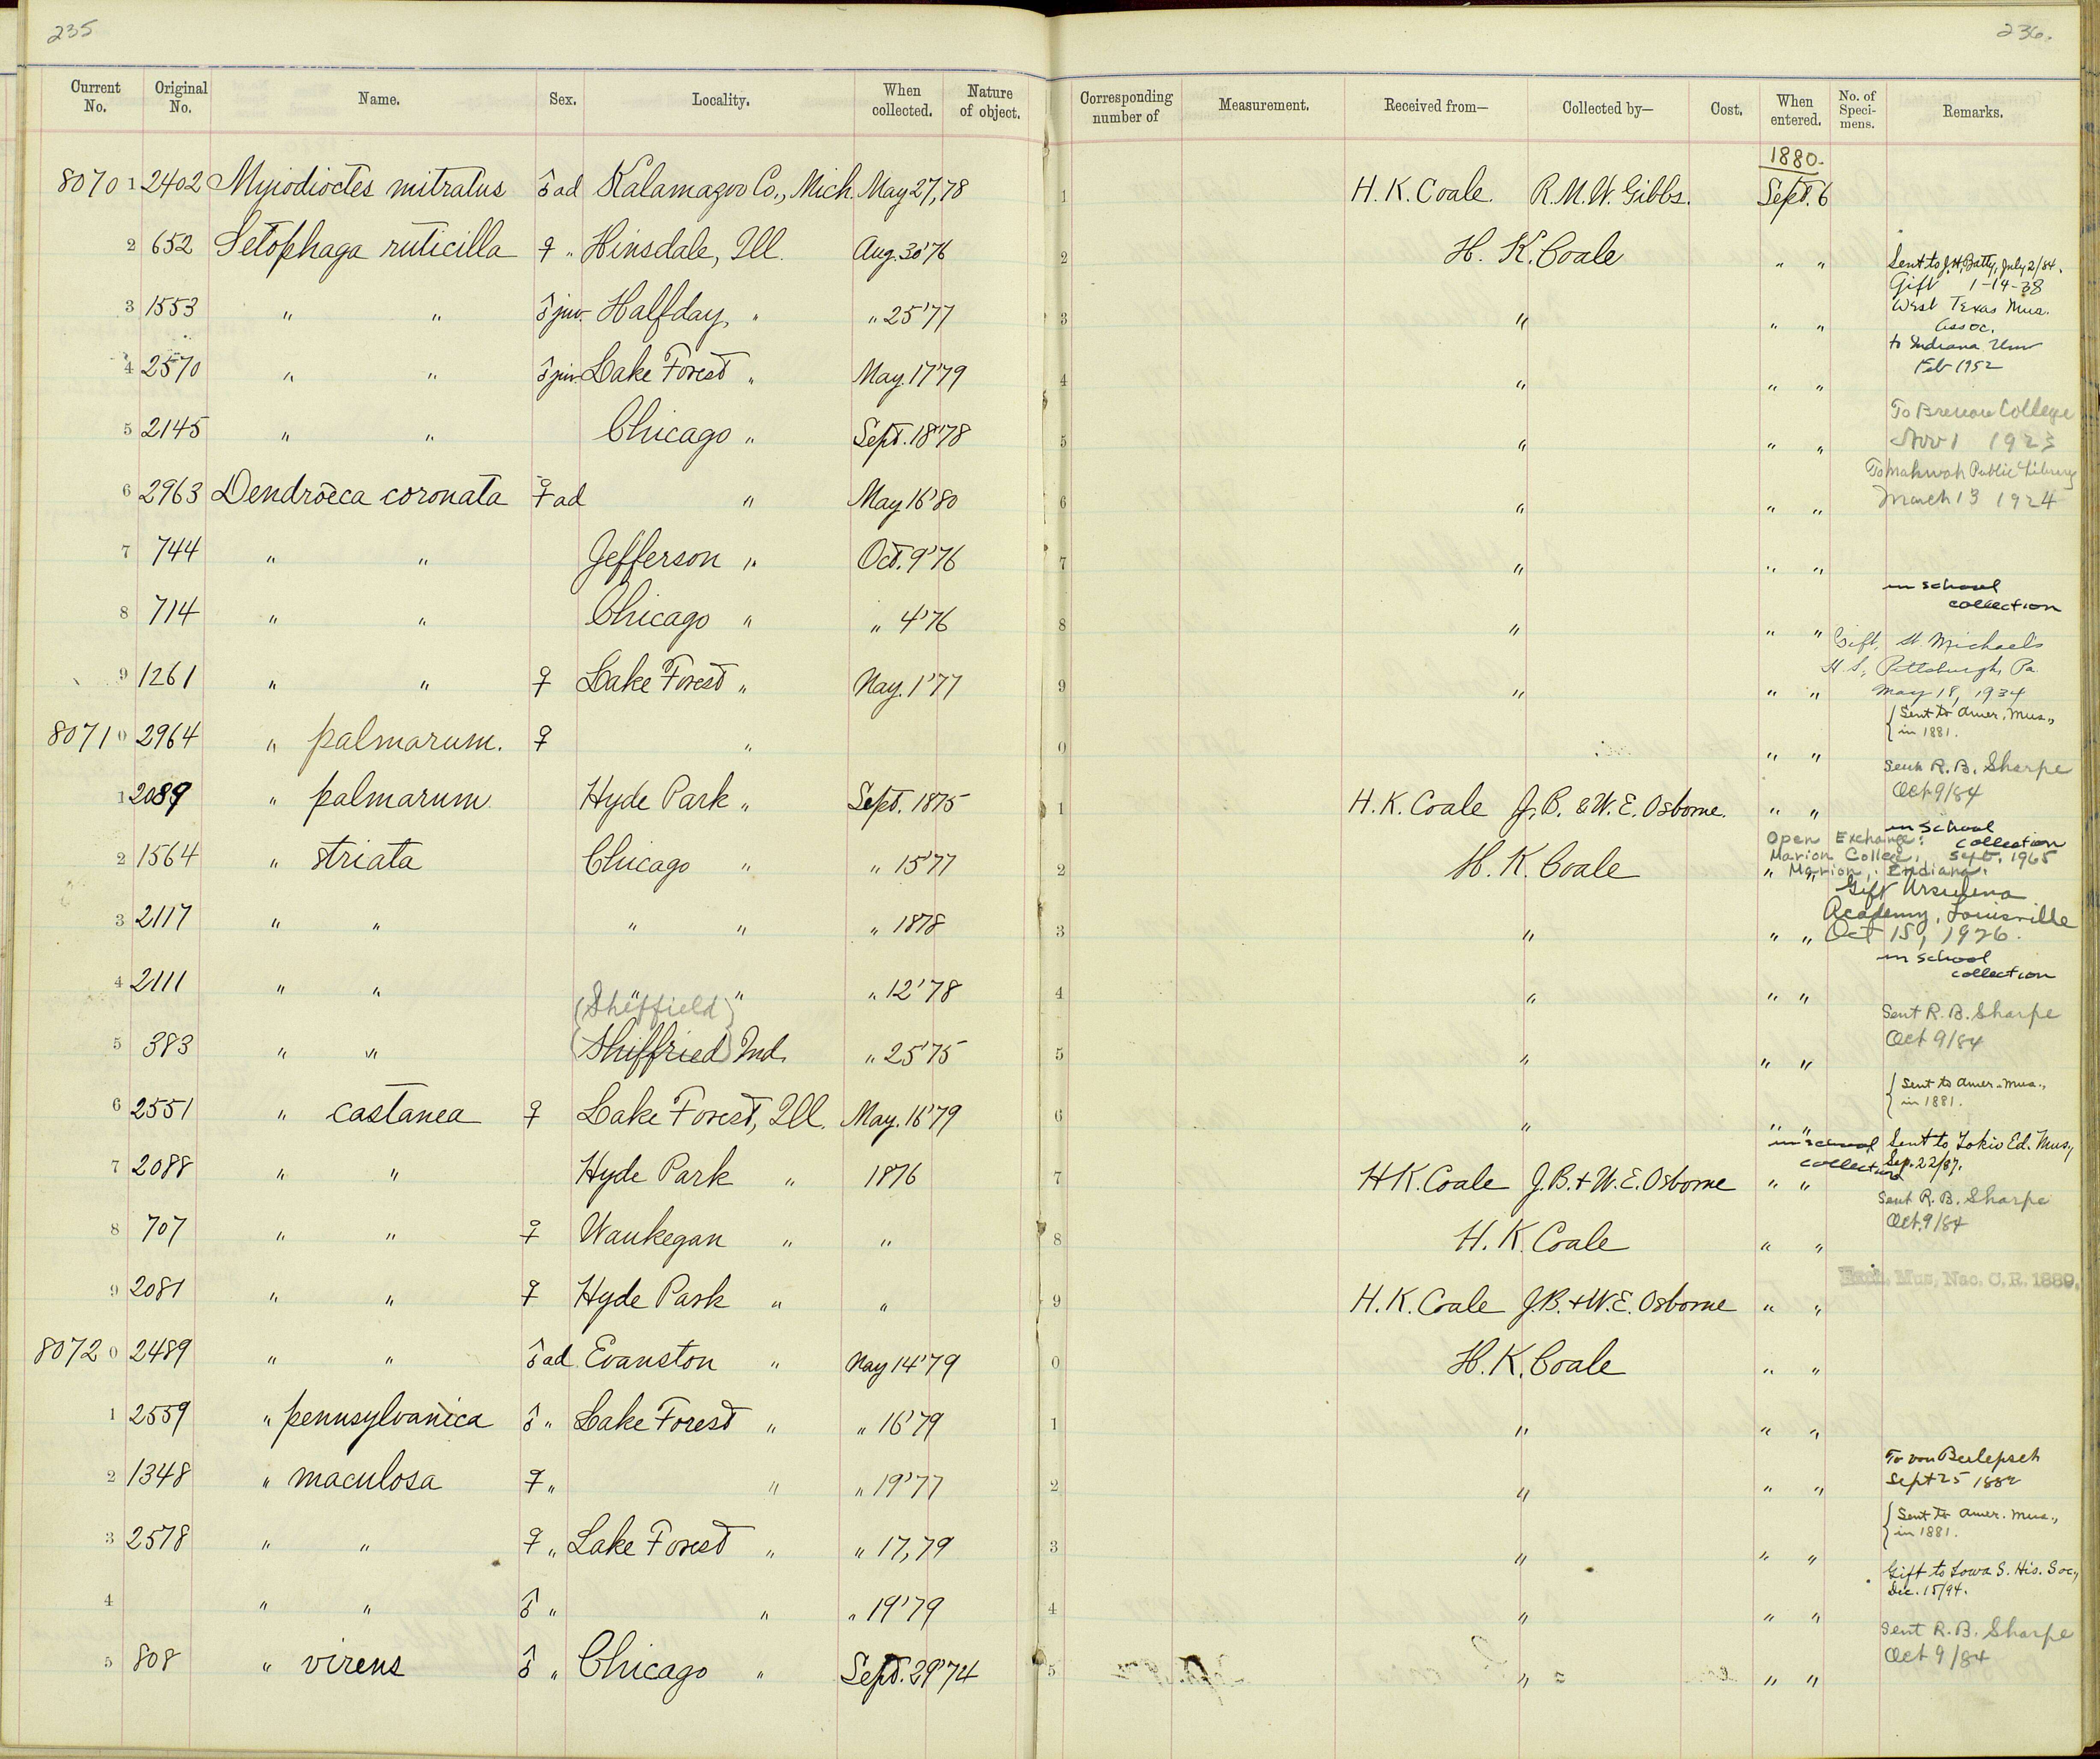 235
236.
Current No. Original No. Name. Sex. Locality. When collected. Nature of object. Corresponding number of Measurement. Received from— Collected by— Cost. When entered. No. of Speci-mens. Remarks.
1880.
80701 2402 Myiodioctes mitratus ♂ ad Kalamazoo Co., Mich. May 27, 78 1 H. K. Coale. R. M. W. Gibbs. Sept. 6
2 652 Setophaga ruticilla ♀ " Hinsdale, Ill. Aug. 30 '76 2 H. K. Coale " " Sent to J. H. Batty, July 2/84.
Gift 1-14-38
3 1553 " " ♂ juv. Halfday, " " 25 '77 3 " " " West Texas Mus.
Assoc.
to Indiana Univ
4 2570 " " ♂ juv. Lake Forest " May. 17 '79 4 " " " Feb 1952
To Brenau College
5 2145 " " Chicago " Sept. 18 '78 5 " " " Nov 1 1923
To Mahwah Public Library
6 2963 Dendroeca coronata ♀ ad " May 16 '80 6 " " " March 13 1924
7 744 " " Jefferson " Oct. 9 '76 7 " " "
in school
collection
8 714 " " Chicago " " 4 '76 8 " " "
Gift, St. Michaels
H. S., Pittsburgh, Pa.
9 1261 " " ♀ Lake Forest " May. 1 '77 9 " " " May 18, 1934
80710 2964 " palmarum. ♀ " 0 " " { Sent to Amer. Mus.,
in 1881.
Sent R. B. Sharpe
1 2089 " palmarum Hyde Park " Sept. 1875 1 H. K. Coale J. B. & W. E. Osborne. " " Oct 9/84
in school
collection
Open Exchange:
Marion College, Sept. 1965
2 1564 " striata Chicago " " 15 '77 2 H. K. Coale " " Marion, Indiana.
Gift Ursulina
Academy, Louisville
3 2117 " " " " " 1878 3 " " " Oct 15, 1926.
in school
collection
4 2111 " " " " " 12 '78 4 " " "
(Sheffield)
Sent R. B. Sharpe
5 383 " " (Shiffried) Ind. " 25 '75 5 " " " Oct 9/84
6 2551 " castanea ♀ Lake Forest, Ill. May. 16 '79 6 " " " { Sent to Amer. Mus.,
in 1881.
in school
collection
Sent to Tokio Ed. Mus.,
7 2088 " " Hyde Park " 1876 7 H K. Coale J. B. + W. E. Osborne " " Sep. 22/87.
Sent R. B. Sharpe
8 707 " " ♀ Waukegan " " 8 H. K. Coale " " Oct. 9/84
9 2081 " " ♀ Hyde Park " " 9 H. K. Coale J. B. + W. E. Osborne " " Exch. Mus, Nac. C. R. 1889.
80720 2489 " " ♂ ad Evanston " May 14 '79 0 H. K. Coale " "
1 2559 " pennsylvanica ♂ " Lake Forest " " 16 '79 1 " " "
To von Berlepsch
2 1348 " maculosa ♀ " " " 19 '77 2 " " " Sept 25 1882
3 2578 " " ♀ " Lake Forest " " 17, 79 3 " " " { Sent to Amer. Mus.,
in 1881.
Gift to Iowa S. His. Soc.,
4 " " ♂ " " " 19 '79 4 " " " Dec. 15/94.
Sent R. B. Sharpe
5 808 " virens ♂ " Chicago " Sept. 29 '74 5 " " " Oct 9/84